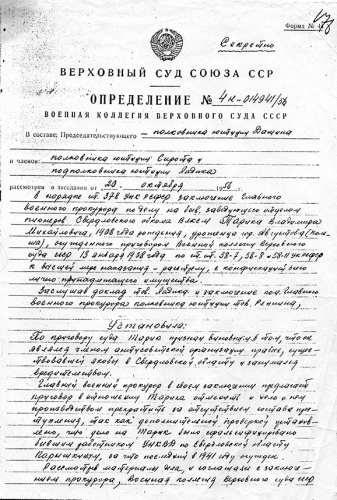 Форма № 4
Секретно
ВЕРХОВНЫЙ СУД СОЮЗА ССР
ОПРЕДЕЛЕНИЕ № 4н-014941/56
ВОЕННАЯ КОЛЛЕГИЯ ВЕРХОВНОГО СУДА СССР
В составе: Председательствующего – полковника юстиции
и членов: полковника юстиции Сирота и
подполковника юстиции
рассмотрев в заседании от 20 октября 1956 г.
в порядке ст. 378 УПК РСФСР заключение Главного
военного прокурора по делу на быв. заведующего отделом
пионеров Свердловского обкома ВЛКСМ Тарика Владимира
Михайловича, 1908 года рождения, уроженца гор.
осужденного приговором Военной коллегии Верховного
суда СССР 13 января 1938 года по ст. ст. 58-7, 58-8 и 58-11 УК РСФСР
к высшей мере наказания – расстрелу, с конфискацией
лично принадлежащего имущества.
Заслушав доклад тов. и заключение пом. Главного
военного прокурора полковника юстиции тов.
Установила:
По приговору суда Тарик признан виновным в том, что он
являлся членом антисоветской организации правых, суще-
ствовавшей якобы в Свердловской области и занимался
вредительством.
Главный военный прокурор в своем заключении предлагает
приговор в отношении Тарика отменить и дело о нем
производством прекратить за отсутствием состава пре-
ступления, так как дополнительной проверкой установле-
но, что дело на Тарик было сфальсифицировано
бывшим работником УНКВД по Свердловской области
за что последний в 1941 году осужден.
Рассмотрев материалы дела и соглашаясь с заключе-
нием прокурора, Военная коллегия Верховного суда СССР